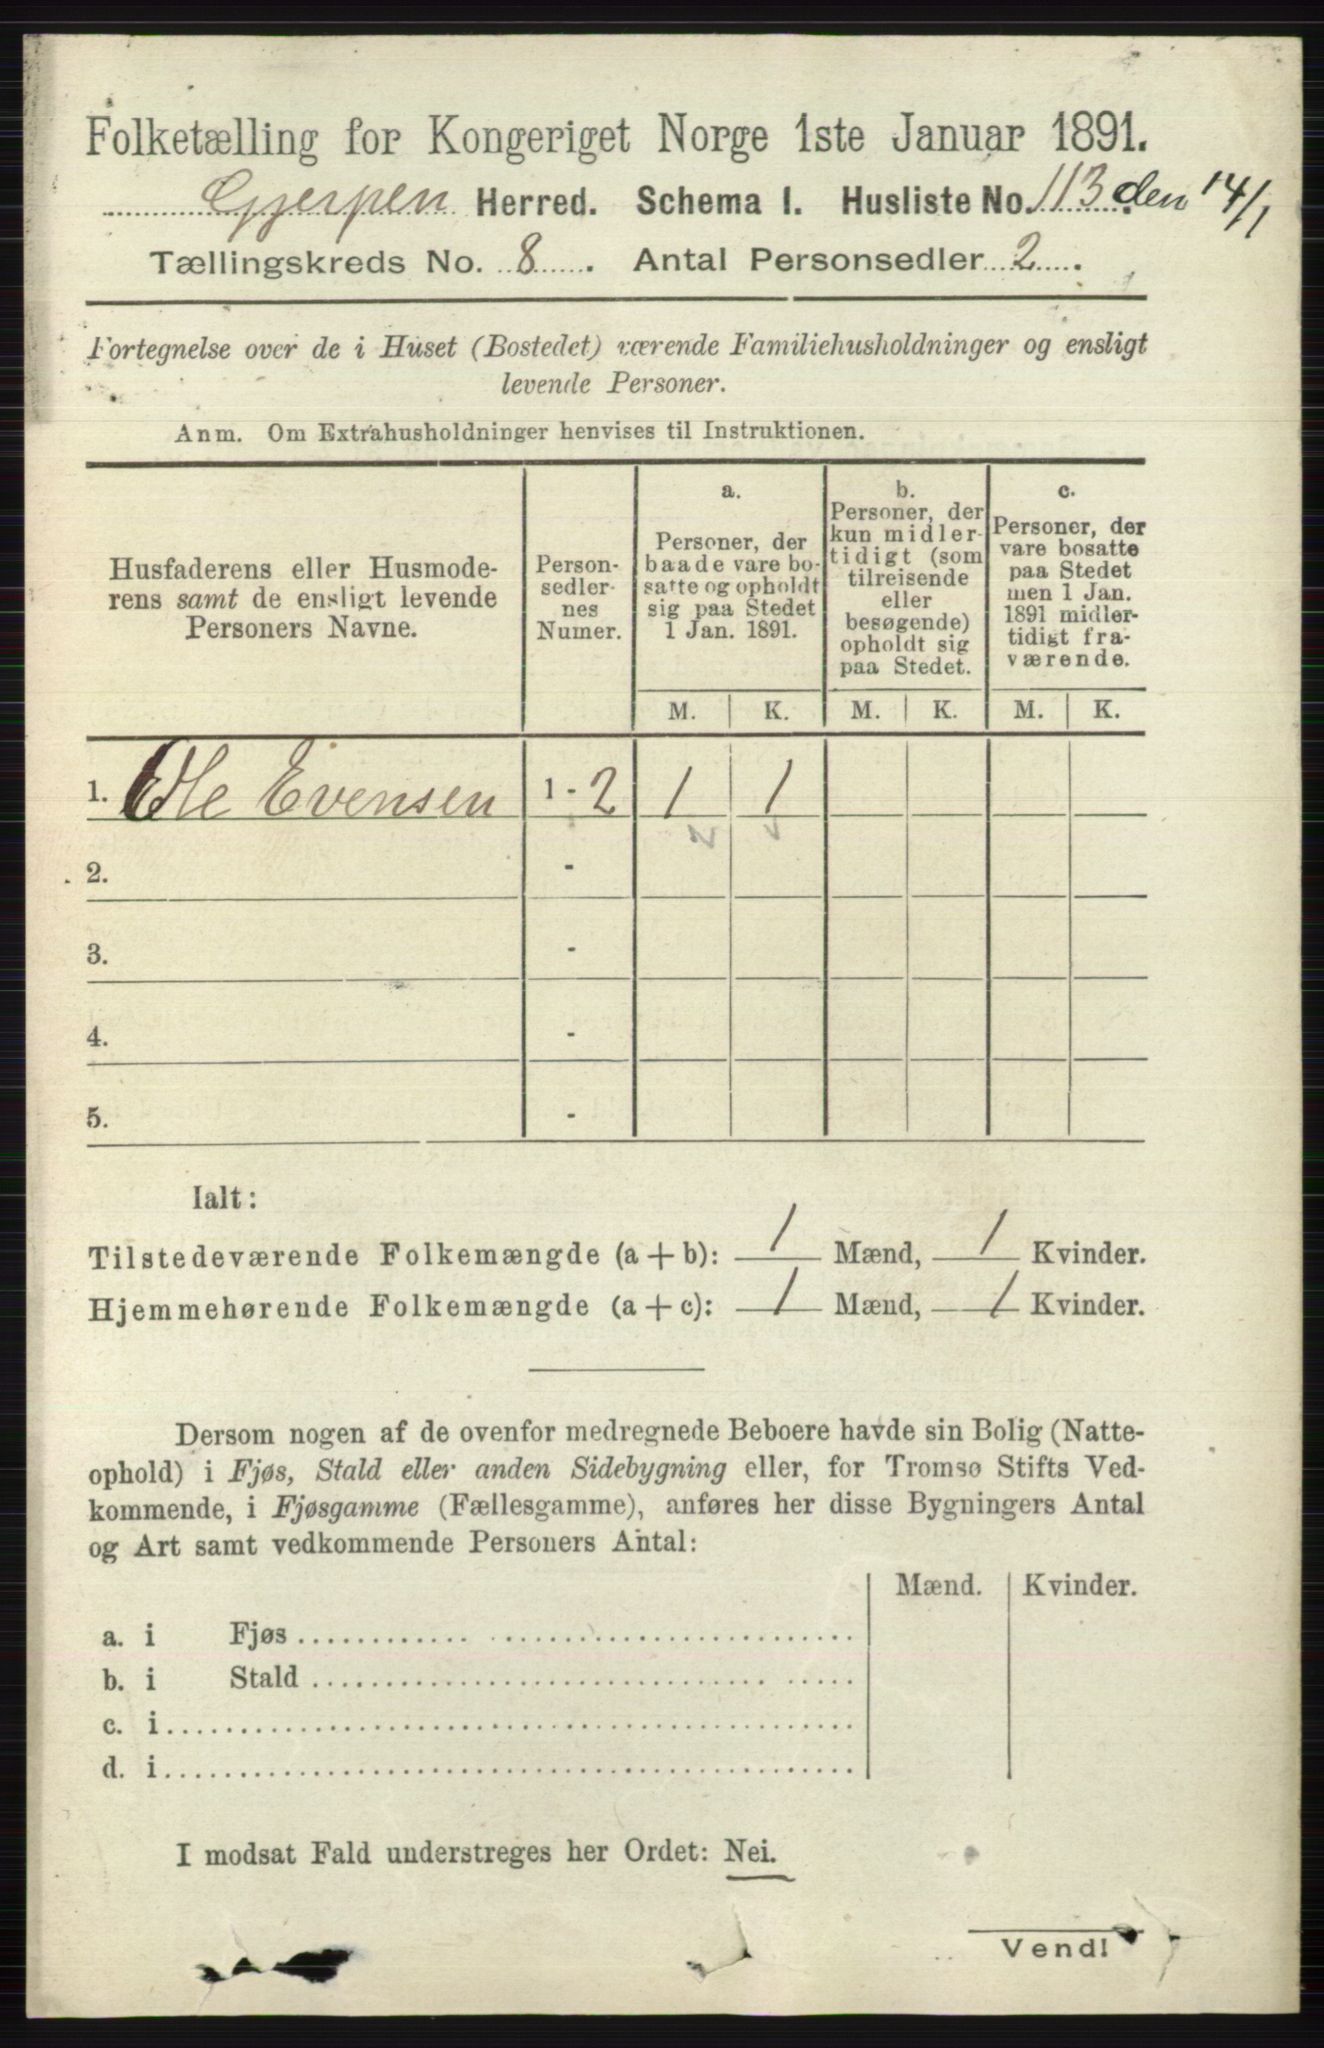 Folketælling for Kongeriget Norge 1ste Januar 1891.
Gjerpen Herred. Schema I. Husliste No. 113 den 14/1
Tællingskreds No. 8. Antal Personsedler 2.
Fortegnelse over de i Huset (Bostedet) værende Familiehusholdninger og ensligt
levende Personer.
Anm. Om Extrahusholdninger henvises til Instruktionen.
Husfaderens eller Husmode-
rens samt de ensligt levende
Personers Navne.
Person-
sedler-
nes
Numer.
a.
Personer, der
baade vare bo-
satte og opholdt
sig paa Stedet
1 Jan. 1891.
b.
Personer, der
kun midler-
tidigt (som
tilreisende
eller
besøgende)
opholdt sig
paa Stedet.
c.
Personer, der
vare bosatte
paa Stedet
men 1 Jan.
1891 midler-
tidigt fra-
værende.
M. K. M. K. M. K.
1. Ole Evensen 1 - 2 1 1
2. -
3. -
4. -
5. -
Ialt:
Tilstedeværende Folkemængde (a + b): 1 Mænd, 1 Kvinder.
Hjemmehørende Folkemængde (a + c): 1 Mænd, 1 Kvinder.
Dersom nogen af de ovenfor medregnede Beboere havde sin Bolig (Natte-
ophold) i Fjøs, Stald eller anden Sidebygning eller, for Tromsø Stifts Ved-
kommende, i Fjøsgamme (Fællesgamme), anføres her disse Bygningers Antal
og Art samt vedkommende Personers Antal:
Mænd. Kvinder.
a. i Fjøs
b. i Stald
c. i
d. i
I modsat Fald understreges her Ordet: Nei.
Vend!